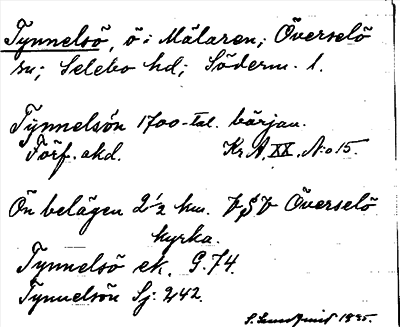 Tynnelsö, ö i Mälaren; Överselö
sn; Selebo hd; Söderm. l.
Tynnelsön 1700-tal. början.
Förf. okd. Kr A. XX. No 15.
Ön belägen 2 1/2 km. VSV Överselö
kyrka.
Tynnelsö ek. G. 74.
Tynnelsön Sj. 242.
1895.